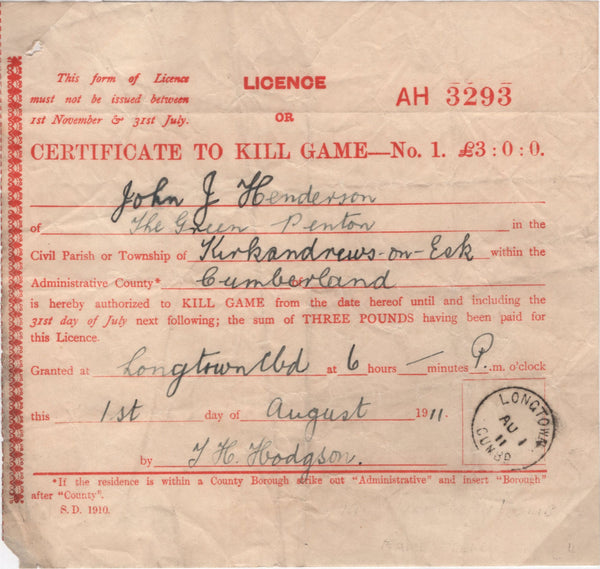 This form of Licence
must not be issued between
1st November & 31st July.
LICENCE
OR
AH 3293
CERTIFICATE TO KILL GAME—No. 1. £3 : 0 : 0.
John J Henderson
of The Green Penton in the
Civil Parish or Township of Kirkandrews-on-Esk within the
Administrative County* of Cumberland
is hereby authorized to KILL GAME from the date hereof until and including the
31st day of July next following; the sum of THREE POUNDS having been paid for
this Licence.
Granted at Longtown Cbd at 6 hours — minutes P.m. o'clock
this 1st day of August 1911.
by T. H. Hodgson.
LONGTOWN
AU 1
11
CUMBD
*If the residence is within a County Borough strike out "Administrative" and insert "Borough"
after "County".
S. D. 1910.